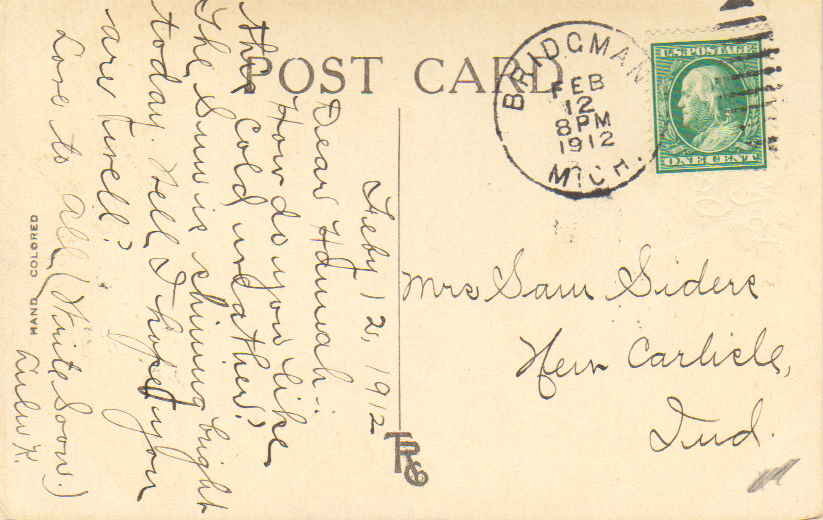 POST CARD
BRIDGMAN
FEB
12
8PM
1912
MICH.
U.S. POSTAGE
ONE CENT
Feby 12, 1912
Dear Hannah:-
How do you like
this cold weather?
The Sun is shining bright
today. Well, I hope you
are well?
Love to all (Write Soon.)
HAND COLORED
Mrs Sam Sidere
New Carlisle,
Ind.